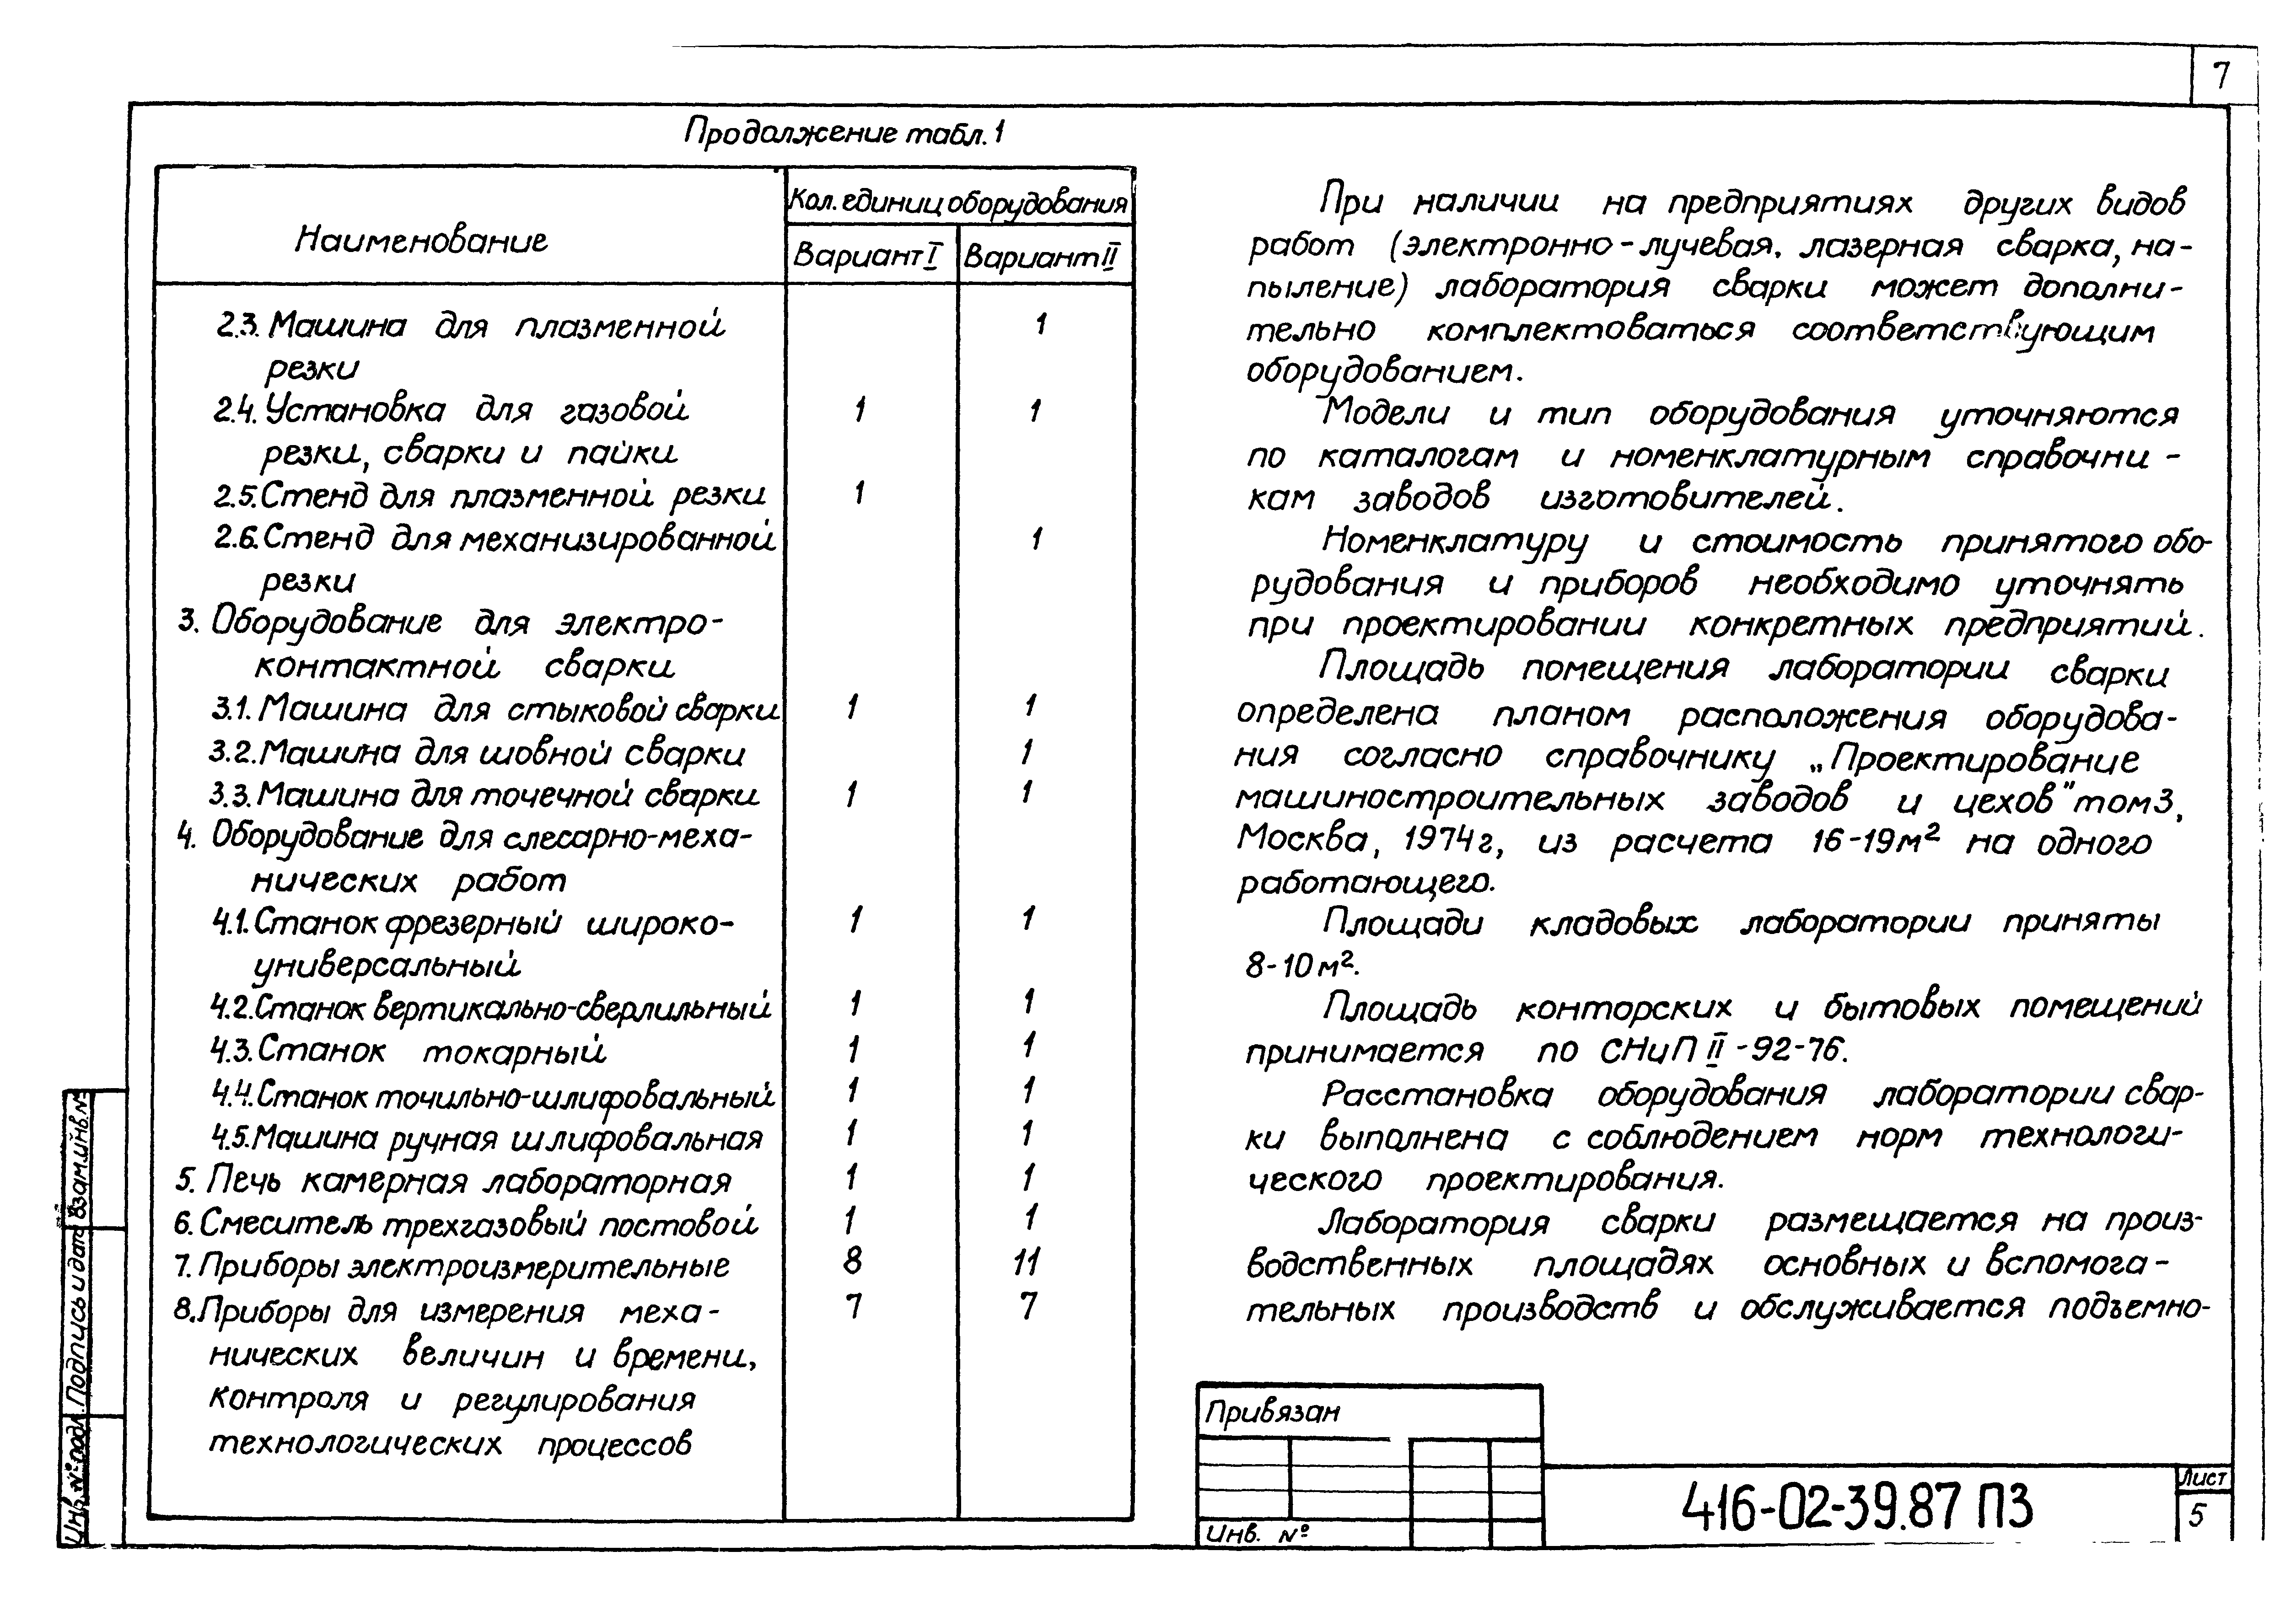 7
Продолжение табл. 1
Наименование
Кол. единиц оборудования
Вариант I Вариант II
2.3. Машина для плазменной 1
резки
2.4. Установка для газовой 1 1
резки, сварки и пайки
2.5. Стенд для плазменной резки 1
2.6. Стенд для механизированной 1
резки
3. Оборудование для электро-
контактной сварки
3.1. Машина для стыковой сварки 1 1
3.2. Машина для шовной сварки 1
3.3. Машина для точечной сварки 1 1
4. Оборудование для слесарно-меха-
нических работ
4.1. Станок фрезерный широко- 1 1
универсальный
4.2. Станок вертикально-сверлильный 1 1
4.3. Станок токарный 1 1
4.4. Станок точильно-шлифовальный 1 1
4.5. Машина ручная шлифовальная 1 1
5. Печь камерная лабораторная 1 1
6. Смеситель трехгазовый постовой 1 1
7. Приборы электроизмерительные 8 11
8. Приборы для измерения меха- 7 7
нических величин и времени,
контроля и регулирования
технологических процессов
При наличии на предприятиях других видов
работ (электронно-лучевая. лазерная сварка, на-
пыление) лаборатория сварки может дополни-
тельно комплектоваться соответствующим
оборудованием.
Модели и тип оборудования уточняются
по каталогам и номенклатурным справочни-
кам заводов изготовителей.
Номенклатуру и стоимость принятого обо-
рудования и приборов необходимо уточнять
при проектировании конкретных предприятий.
Площадь помещения лаборатории сварки
определена планом расположения оборудова-
ния согласно справочнику „Проектирование
машиностроительных заводов и цехов" том 3,
Москва, 1974г, из расчета 16-19м² на одного
работающего.
Площади кладовых лаборатории приняты
8-10м².
Площадь конторских и бытовых помещений
принимается по СНиП II-92-76.
Расстановка оборудования лаборатории свар-
ки выполнена с соблюдением норм технологи-
ческого проектирования.
Лаборатория сварки размещается на произ-
водственных площадях основных и вспомога-
тельных производств и обслуживается подъемно-
Привязан
Инв. №
416-02-39.87 ПЗ
Лист
5
Инв. № подл. Подпись и дата Взам.инв.№